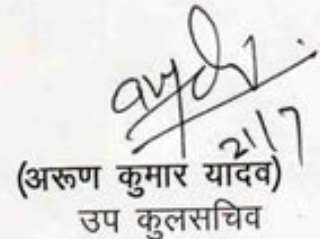 21/7
(अरूण कुमार यादव)
उप कुलसचिव